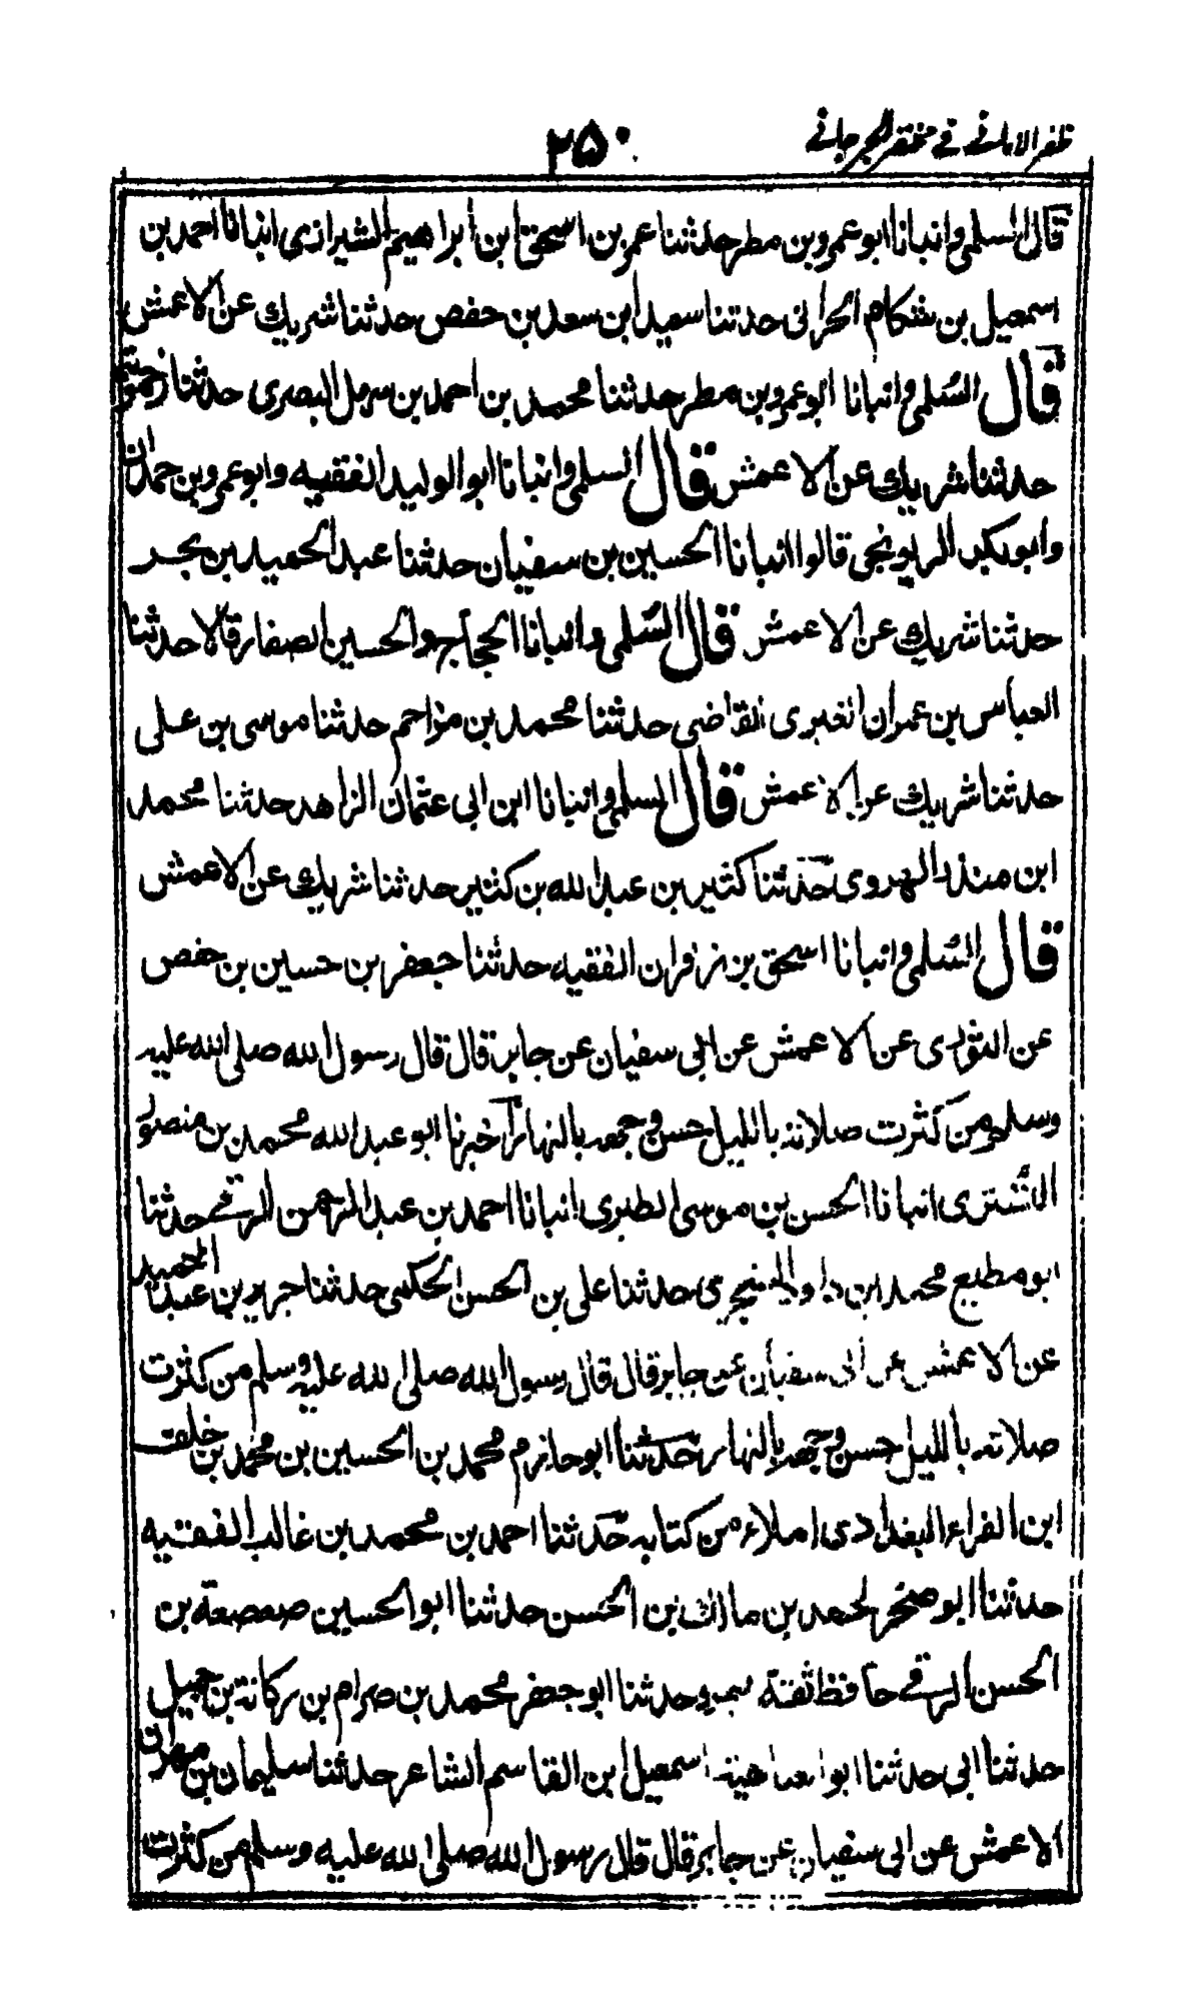 ظفر الامانی فی مختصر الجرجانی
۲۵۰
قال السلمی وانبانا ابو عمرو بن مطر حدثنا عمر بن اسحق ابن ابراهیم الشیرازی انبانا احمد بن
اسمعیل بن شکام الحرانی حدثنا سعید ابن سعد بن حفص حدثنا شریك عن الاعمش
قال السلمی وانبانا ابو عمرو بن مطر حدثنا محمد بن احمد بن سهل البصری حدثنا زحمویه
حدثنا شریك عن الاعمش قال السلمی وانبانا ابو الولید الفقیه وابو عمرو بن حمدان
وابو بکر الریونجی قالوا انبانا الحسین بن سفیان حدثنا عبد الحمید بن بحر
حدثنا شریك عن الاعمش قال السلمی وانبانا الحجاج والحسین الصفار قالا حدثنا
العباس بن عمران القاضی حدثنا محمد بن مزاحم حدثنا موسی بن علی
حدثنا شریك عن الاعمش قال السلمی وانبانا ابن ابی عثمان الزاهد حدثنا محمد
ابن منذر الهروی حدثنا کثیر بن عبد الله بن کثیر حدثنا شریك عن الاعمش
قال السلمی وانبانا اسحق بن زفران الفقیه حدثنا جعفر بن حسین بن حفص
عن الثوری عن الاعمش عن ابی سفیان عن جابر قال قال رسول الله صلی الله علیه
وسلم من کثرت صلاته باللیل حسن وجهه بالنهار اخبرنا ابو عبد الله محمد بن منصور
التشتری انبانا الحسن بن موسی الطبری انبانا احمد بن عبد الرحمن الرقی حدثنا
ابو مطیع محمد ابن داود السنجری حدثنا علی بن الحسن الحکمی حدثنا جریر بن عبد الحمید
عن الاعمش عن ابی سفیان عن جابر قال قال رسول الله صلی الله علیه وسلم من کثرت
صلاته باللیل حسن وجهه بالنهار حدثنا ابو حازم محمد بن الحسین بن محمد بن خلف
ابن الفراء البغدادی املاء من کتابه حدثنا احمد بن محمد بن غالب الفقیه
حدثنا ابو صخر محمد بن مالك بن الحسن حدثنا ابو الحسین صعصعة بن
الحسن الرقی حافظ ثقة بمرو حدثنا ابو جعفر محمد بن صرام بن رکانة بن جمیل
حدثنا ابی حدثنا ابو العتاهیة اسمعیل ابن القاسم الشاعر حدثنا سلیمان بن مهران
الاعمش عن ابی سفیان عن جابر قال قال رسول الله صلی الله علیه وسلم من کثرت